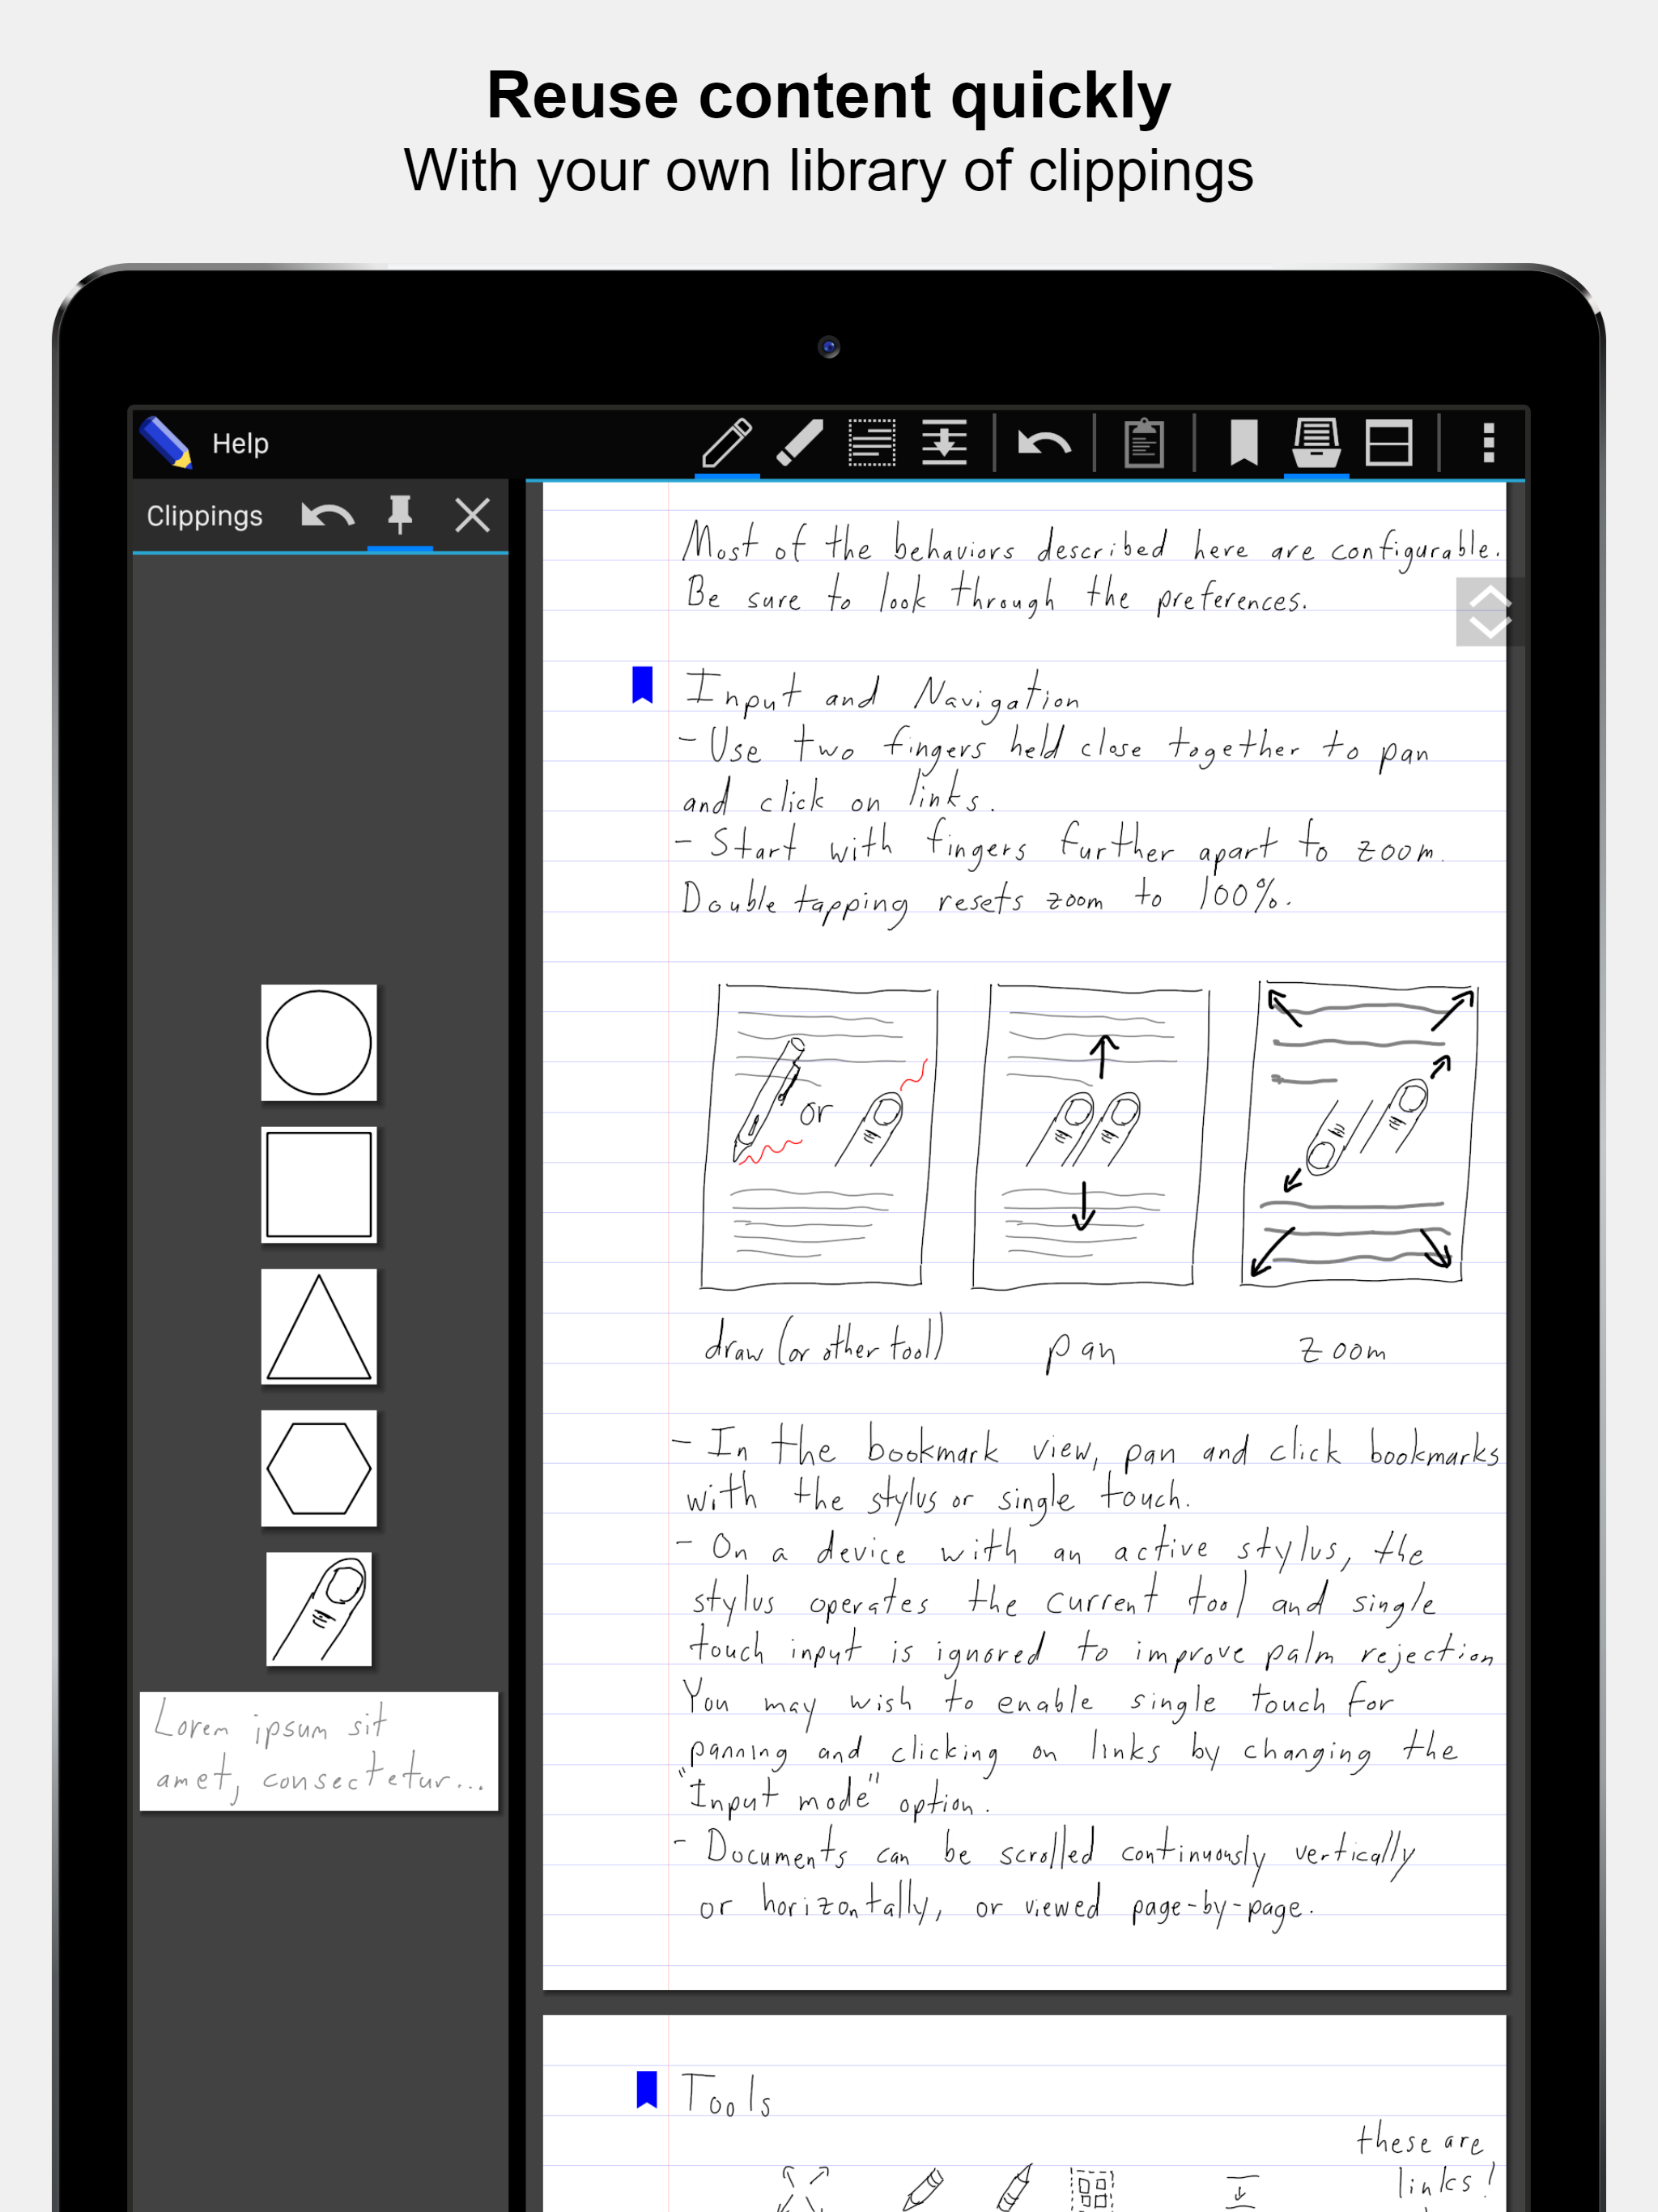 Reuse content quickly
With your own library of clippings
Help
Clippings
Most of the behaviors described here are configurable.
Be sure to look through the preferences.
Input and Navigation
- Use two fingers held close together to pan
and click on links.
- Start with fingers further apart to zoom.
Double tapping resets zoom to 100%.
or
draw (or other tool)
pan
zoom
- In the bookmark view, pan and click bookmarks
with the stylus or single touch.
- On a device with an active stylus, the
stylus operates the current tool and single
touch input is ignored to improve palm rejection
You may wish to enable single touch for
panning and clicking on links by changing the
"Input mode" option.
- Documents can be scrolled continuously vertically
or horizontally, or viewed page-by-page.
Lorem ipsum sit
amet, consectetur...
Tools
these are
links!